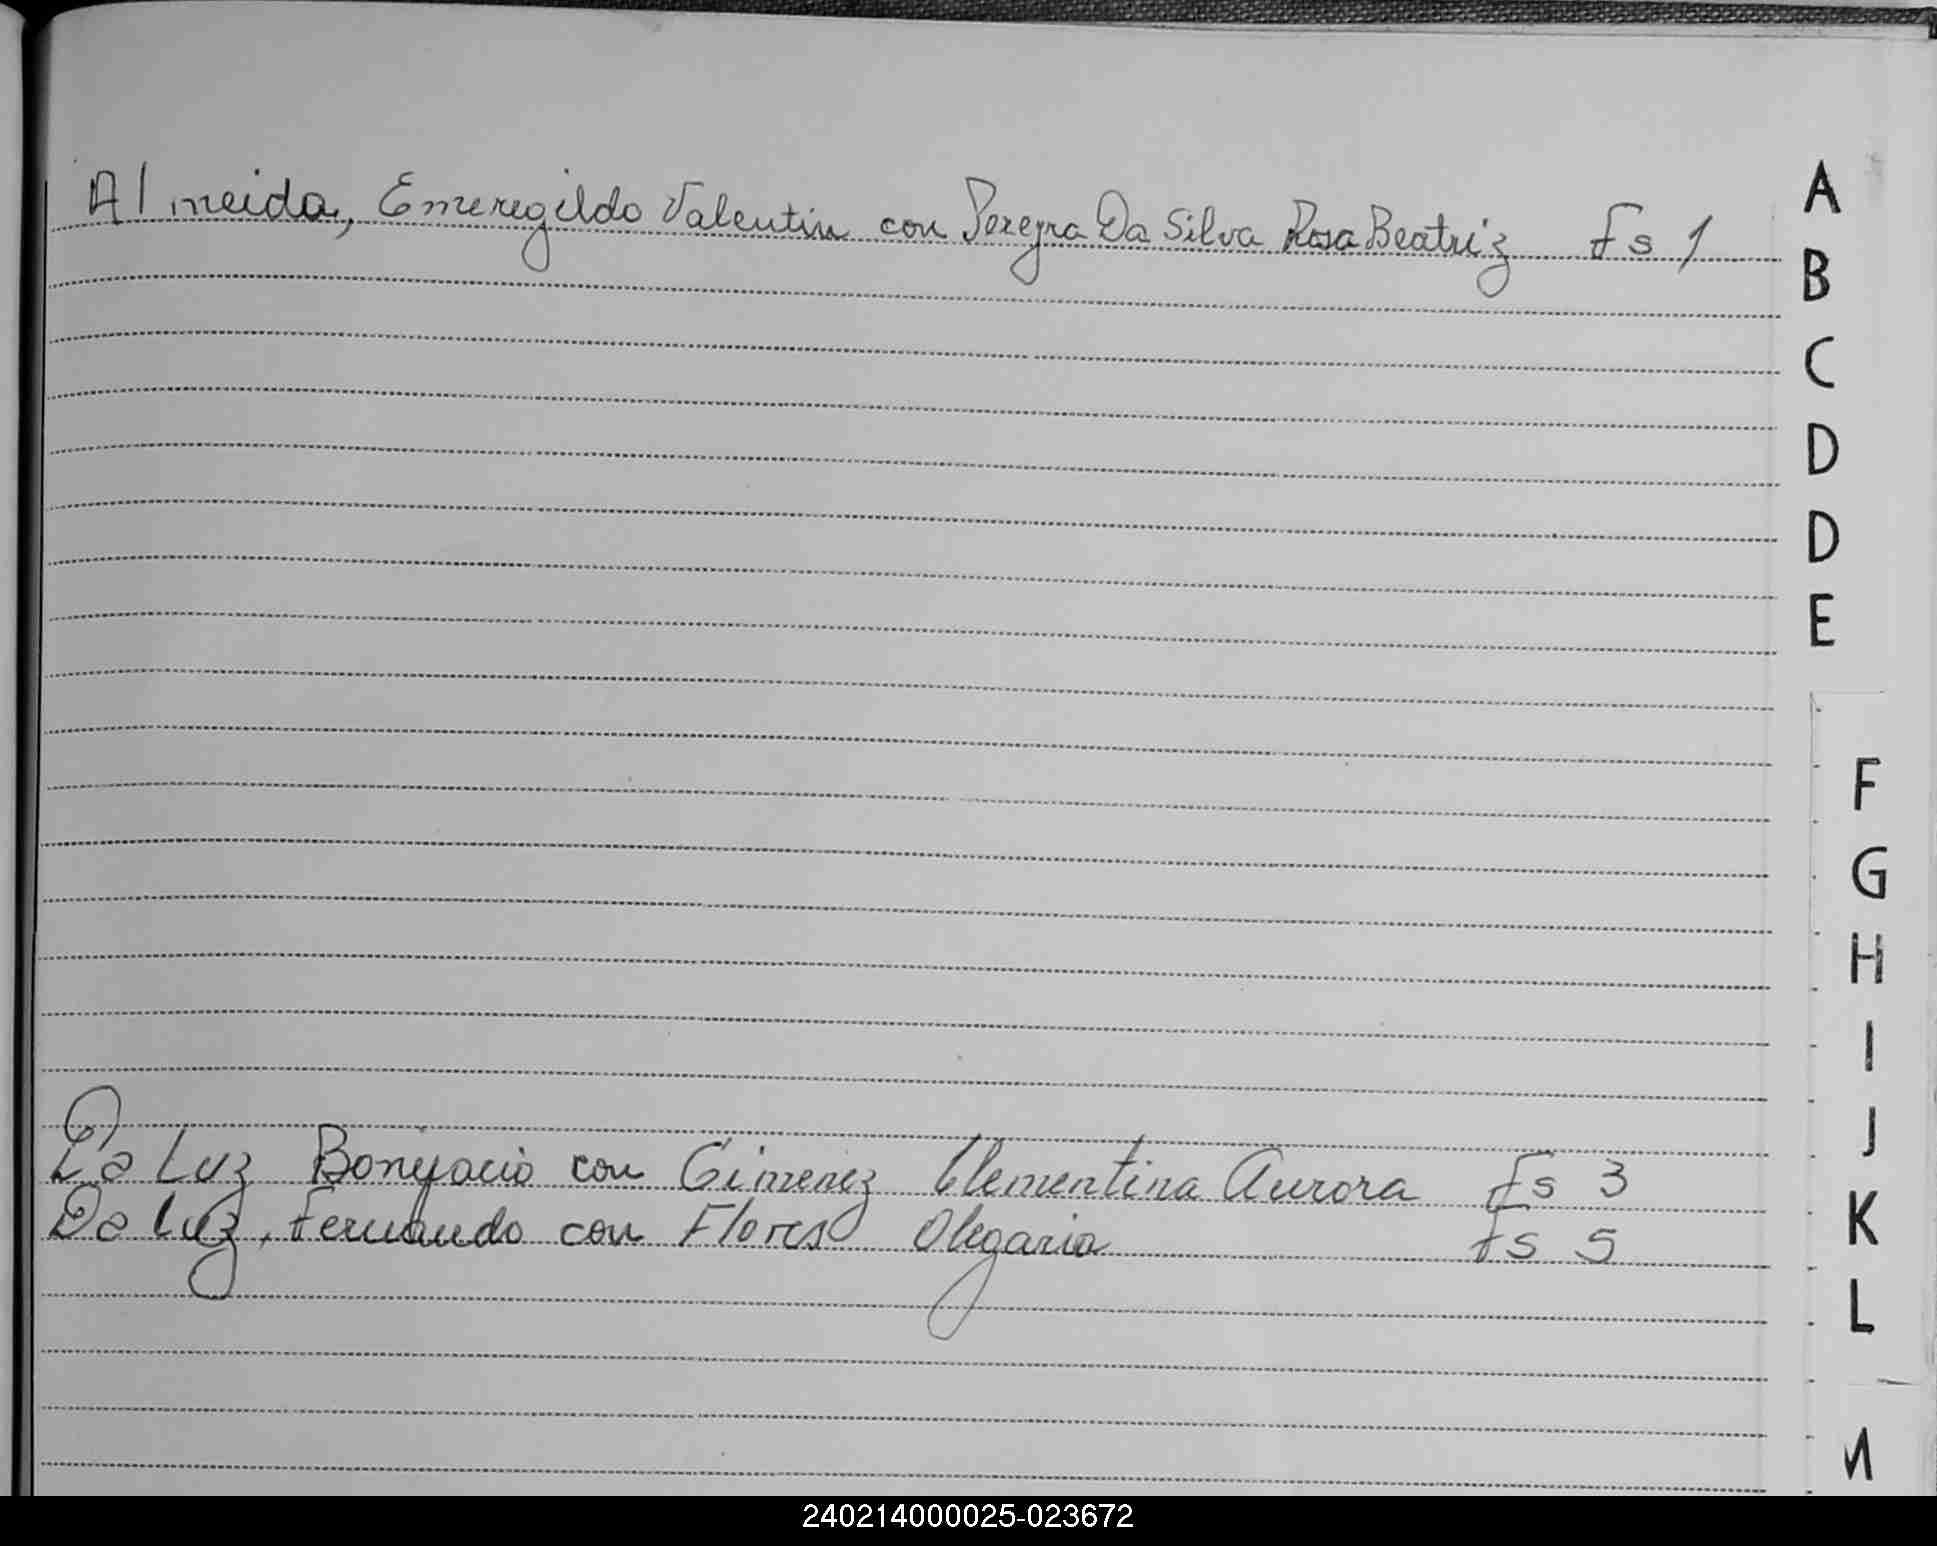 Almeida, Emeregildo Valentin con Pereyra Da Silva Rosa Beatriz Fs 1
Da Luz Bonifacio con Gimenez Clementina Aurora Fs 3
Da Luz, Fernando con Flores Olegaria Fs 5
A
B
C
D
D
E
F
G
H
I
J
K
L
240214000025-023672